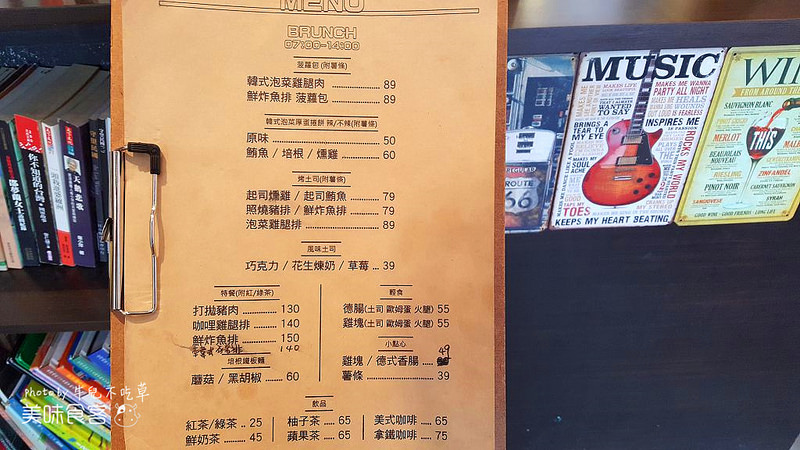 MENU
BRUNCH
07:00-14:00
菠蘿包(附薯條)
韓式泡菜雞腿肉 ........ 89
鮮炸魚排 菠蘿包 ........ 89
韓式泡菜厚蛋捲餅 辣/不辣(附薯條)
原味 ........ 50
鮪魚 / 培根 / 燻雞 ........ 60
烤土司(附薯條)
起司燻雞 / 起司鮪魚 ........ 79
照燒豬排 / 鮮炸魚排 ........ 79
泡菜雞腿排 ........ 89
風味土司
巧克力 / 花生煉奶 / 草莓 ... 39
特餐(附紅/綠茶)
打拋豬肉 ........ 130
咖哩雞腿排 ........ 140
鮮炸魚排 ........ 150
140
培根鐵板麵
蘑菇 / 黑胡椒 ........ 60
輕食
德腸(土司 歐姆蛋 火腿) 55
雞塊(土司 歐姆蛋 火腿) 55
小點心
雞塊 / 德式香腸 .... 49
薯條 ........ 39
飲品
紅茶/綠茶 .. 25
鮮奶茶 ...... 45
柚子茶 .... 65
蘋果茶 .... 65
美式咖啡 .... 65
拿鐵咖啡 .... 75
你不知道的台灣
天鵝悲歌
photo by 牛兒不吃草
美味食客
ROUTE
66
MUSIC
MAKES ME WANNA
PARTY ALL NIGHT
MAKES ME HEALS
INSPIRES ME
BRINGS A
TEAR TO
MY EYE
ROCKS MY WORLD
MAKES
MY
SOUL
ACHE
TAPS MY
TOES
KEEPS MY HEART BEATING
WINE
FROM AROUND THE
SAUVIGNON BLANC
MERLOT
THIS
BEAUJOLAIS
NOUVEAU
RIESLING
ZINFANDEL
PINOT NOIR
CABERNET SAUVIGNON
SANGOVESE
SYRAH
GOOD WINE · GOOD FRIENDS · LONG LIFE